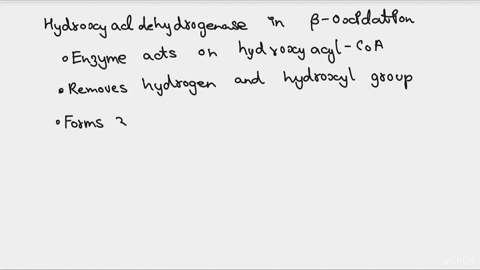 Hydroxy acl dehydrogenase in β-Oxidation
• Enzyme acts on hydroxyacyl-CoA
• Removes hydrogen and hydroxyl group
• Forms